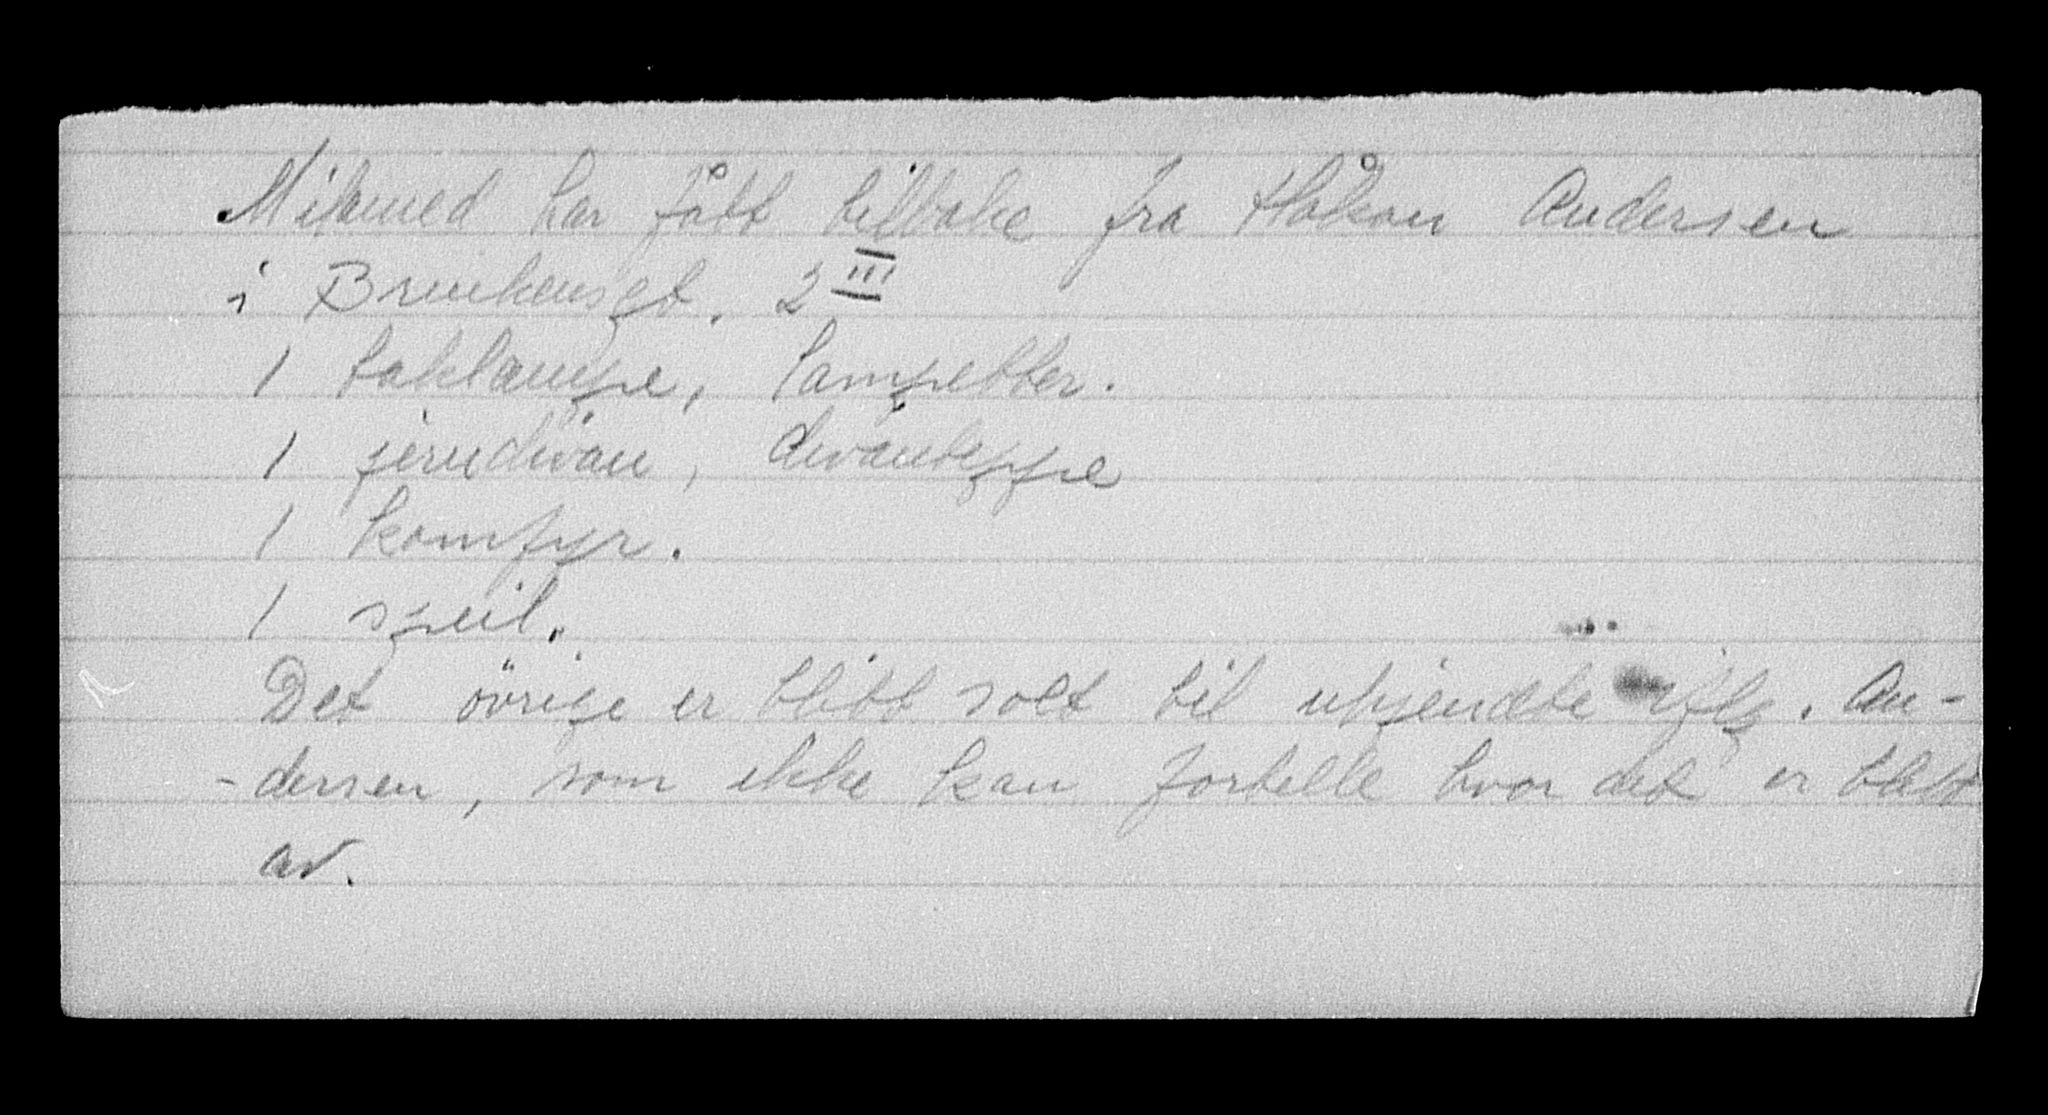 Milamed har fått tilbake fra Håkon Andersen
i Brinkensgt. 2 III
1 taklampe, lampetter.
1 jerndivan, divanteppe
1 komfyr.
1 speil.
Det övrige er blitt solt til ukjendte iflg. An-
-dersen, som ikke kan fortelle hvor det er blitt
av.